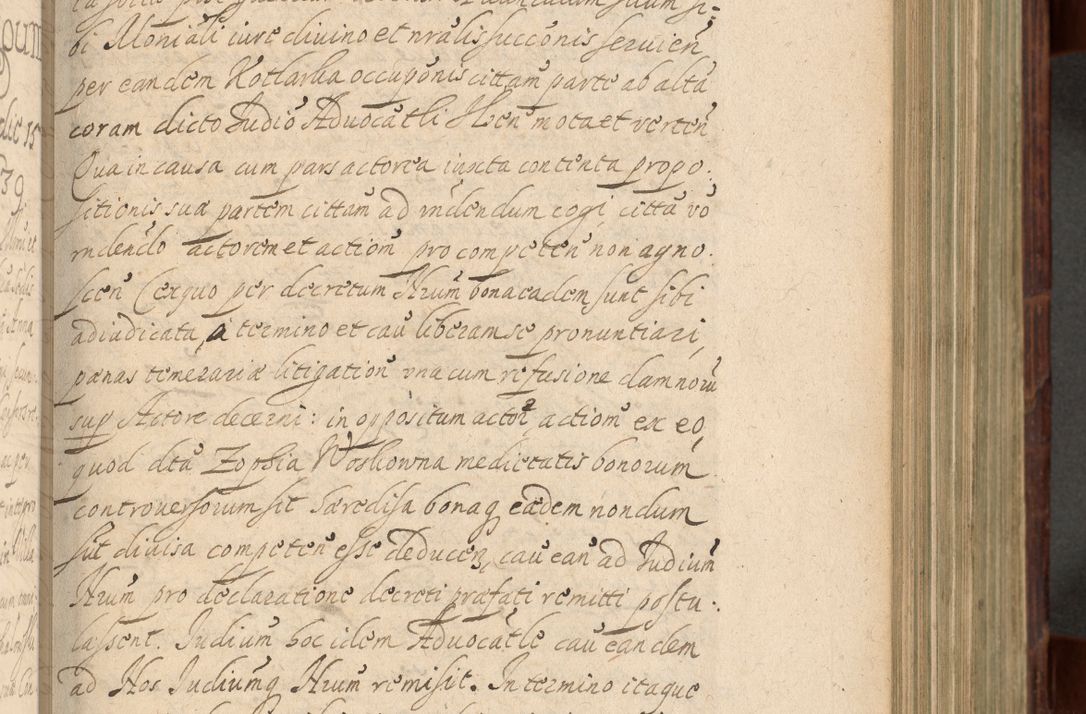 bi Moniali iure divino et nralis succonis servien
per eandem Kotlarka occuponis cittam parte ab alta
coram dicto Iudio Advocatli Ilcen mota et verten
Qua in causa cum pars actorea iuxta contenta propo.
sitionis suæ partem cittam ad rndendum cogi, citta vo
rndendo actorem et actiom pro competen non agno.
scen (ex quo per decretum Nrum bona eadem sunt sibi
adiudicata, a termino et cau liberam se pronuntiari,
pænas temerariæ litigation vna cum refusione damnoru
sup Actore decerni: in oppositum actor actiom ex eo,
quod dta Zophia Woskowna medietatis bonorum
controversorum sit hæredisa bonaq eadem nondum
sut divisa competen esse deducen, cau ean ad Iudium
Nrum pro declaratione decreti præfati remitti postu.
lassent. Iudium hoc idem Advocatle cau eandem
ad Nos Iudiumq Nrum remisit. In termino itaque